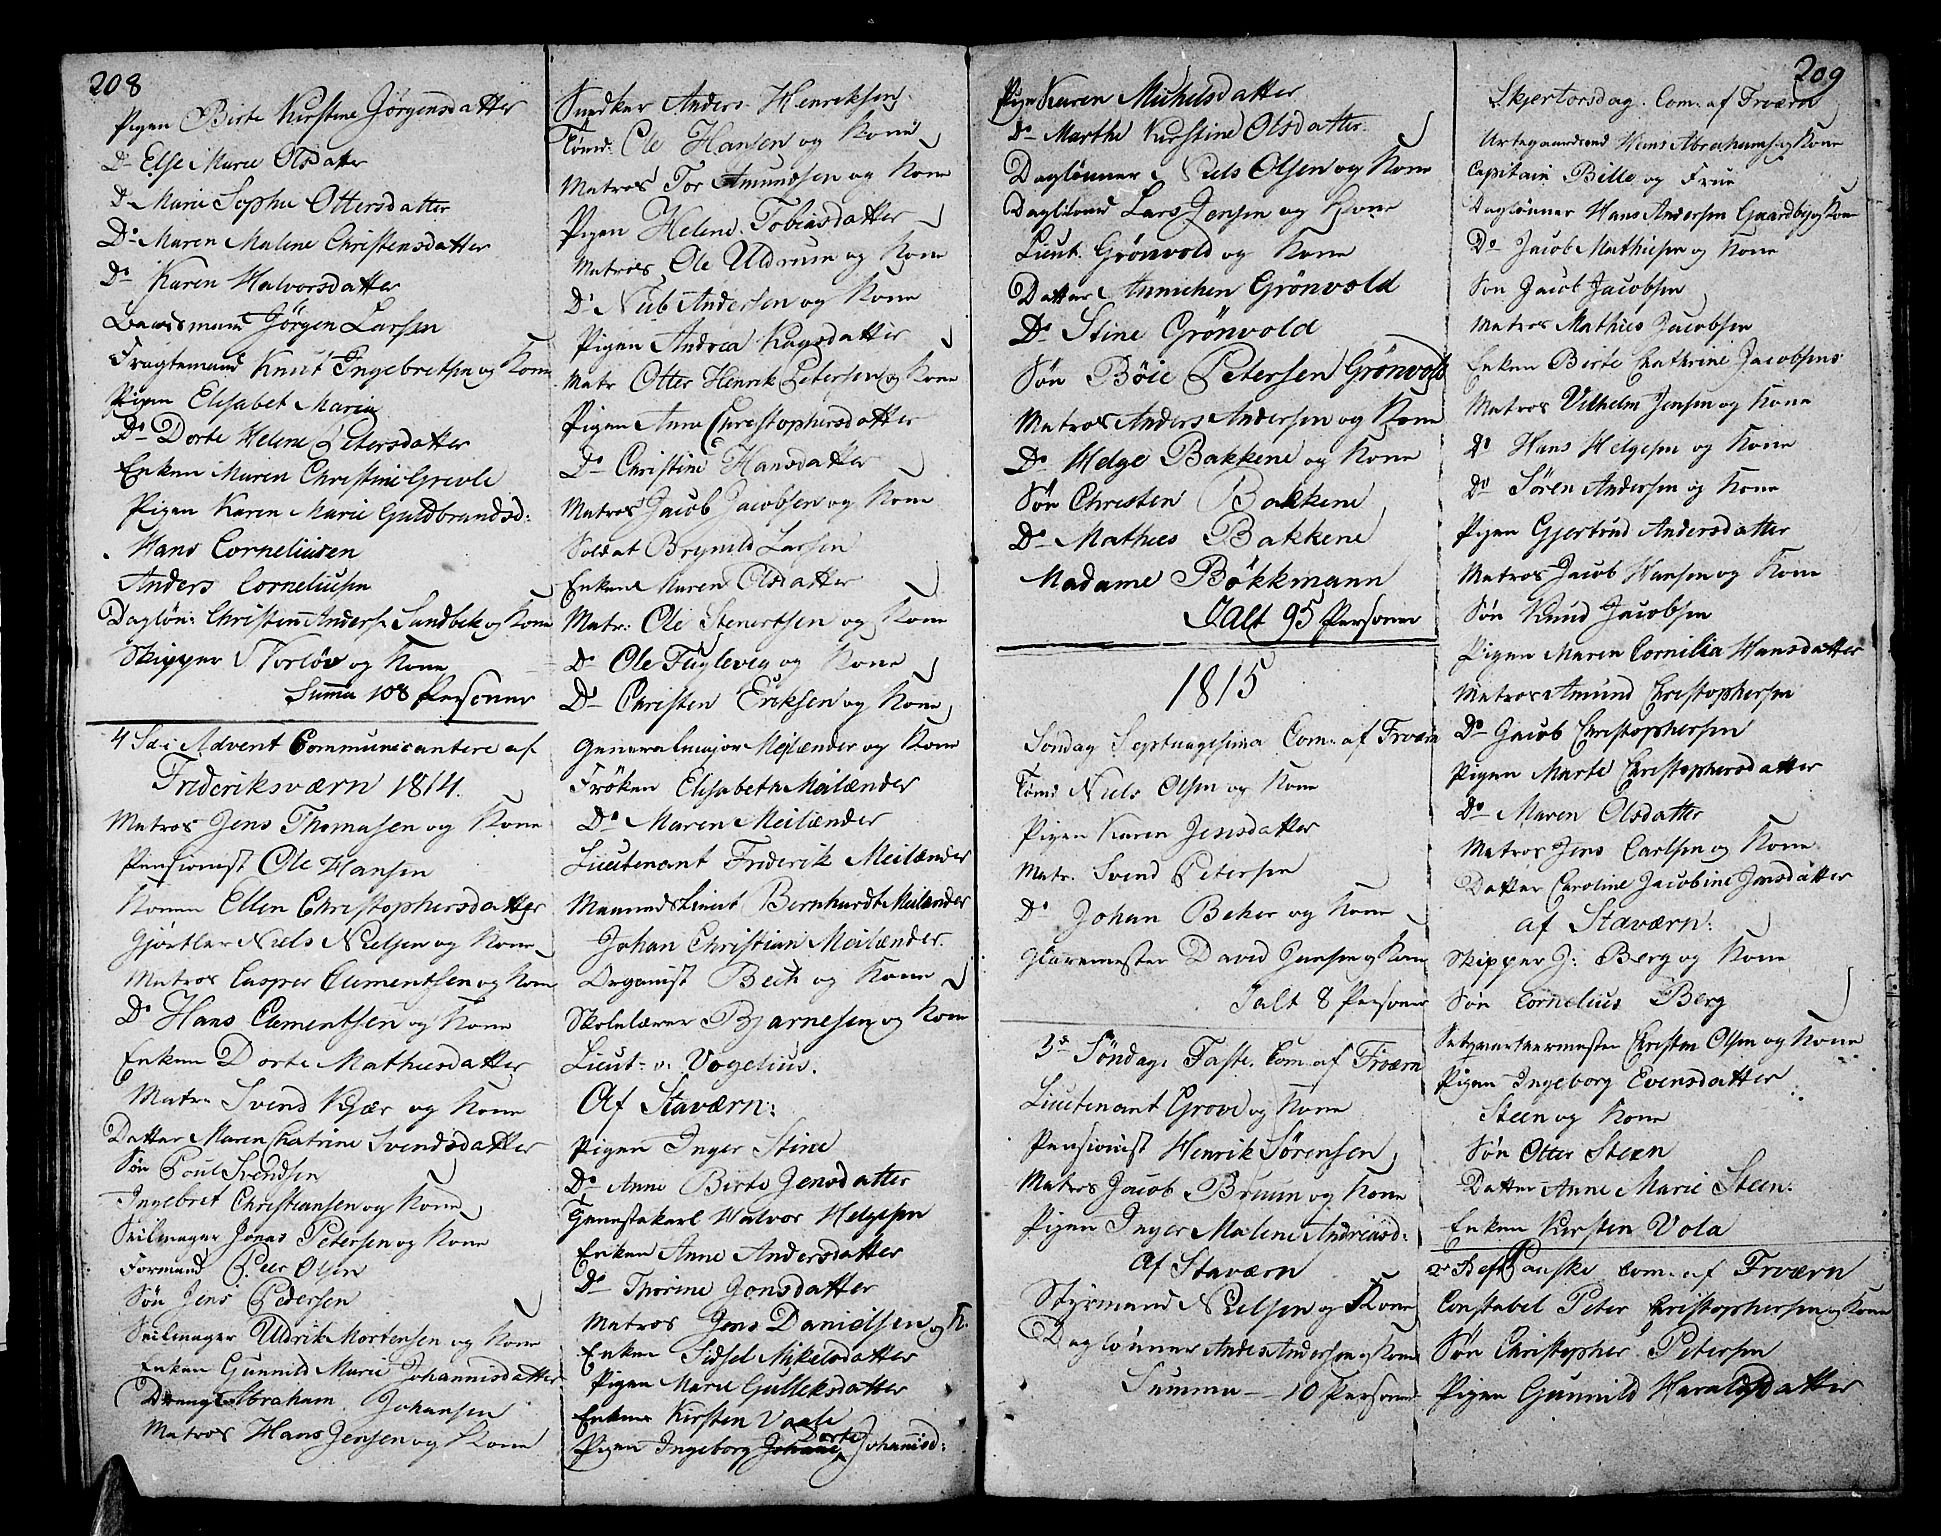 208
Pigen Birte Kirstine Jörgensdatter
Do Else Marie Olsdatter
Do Marie Sophie Ottersdatter
Do Maren Malene Christensdatter
Do Karen Halvorsdatter
Baadsmand Jörgen Larsen
Fragtemand Knut Ingebretsen og Kone
Pigen Elisabet Maria
Do Dorte Helene Petersdatter
Enken Maren Christine Grevle
Pigen Karen Marie Guldbrandsd:
Hans Corneliusen
Anders Corneliusen
Daglön: Christian Anders. Sundbek og Kone
Skipper Norlöv og Kone
Summa 108 Personer
4 S. i Advent Communicantere af
Frideriksværn 1814.
Matros Jens Thomasen og Kone
Pensionist Ole Hansen
Konen Ellen Christophersdatter
Gjörtler Niels Nielsen og Kone
Matros Casper Clementsen og Kone
Do Hans Clementsen og Kone
Enken Dorte Mathiesdatter
Matr. Svend Kjær og Kone
Datter Maren Chatrine Svendsdatter
Sön Poul Svendsen
Ingebret Christiansen og Kone
Seilmager Jonas Petersen og Kone
Formand Peer Olsen
Sön Jens Pedersen
Seilmager Uldrik Mortensen og Kone
Enken Gunnild Marie Johannisdatter
Dreng Abraham Johansen
Matros Hans Jensen og Kone
Snedker Anders Henriksen
Tömd: Ole Hansen og Kone
Matros Tor Amundsen og Kone
Pigen Helene Tobiasdatter
Matros Ole Uldrum og Kone
Do Niels Andersen og Kone
Pigen Andrea Kagsdatter
Matr Otter Henrik Petersen og Kone
Pigen Anne Christophersdatter
Do Christine Hansdatter
Matros Jacob Jacobsen og Kone
Soldat Brynild Larsen
Enken Maren Olsdatter
Matr: Ole Stenertsen og Kone
Do Ole Fuglevig og Kone
Do Christen Eriksen og Kone
Generalmajor Meilænder og Kone
Fröken Elisabeth Meilænder
Do Maren Meilænder
Lieutenant Friderik Meilænder
Maanedslieut Bernhardt Meilænder
Johan Christian Meilænder.
Organist Bech og Kone
Skolelærer Bjarnesen og Kone
Lieut: v. Vogelius.
Af Staværn:
Pigen Inger Stine
Do Anne Birte Jensdatter
Tienestekarl Halvor Helgesen
Enken Anne Andersdatter
Do Thorine Jonsdatter
Matros Jens Danielsen og K.
Enken Sidsel Mikelsdatter
Pigen Marie Gulleksdatter
Enken Kirsten Vaale
Pigen Ingeborg Dorte Johannisd:
209
Pigen Karen Michelsdatter
Do Marthe Kirstine Olsdatter
Daglönner Niels Olsen og Kone
Daglönd Lars Jensen og Kone
Lieut. Grönvold og Kone
Datter Annichen Grönvold
Do Stine Grönvold
Sön Böie Petersen Grönvold
Matros Anders Andersen og Kone
Do Helge Bakkene og Kone
Sön Christen Bakkene
Do Mathies Bakkene
Madame Bökkmann
Ialt 95 Personer
1815
Söndag Septuagesima Com: af Frværn
Tömd Niels Olsen og Kone
Pigen Karen Jensdatter
Matr. Svend Petersen
Do Johan Beker og Kone
Glarmester David Jensen og Kone
Ialt 8 Personer
3die Söndag i Faste. Com: af Frværn
Lieutenant Grove og Kone
Pensionist Henrik Sörensen
Matros Jacob Bruun og Kone
Pigen Inger Malene Andreasd:
Af Staværn
Styrmand Nielsen og Kone
Daglönner Anders Andersen og Kone
Summa 10 Personer
Skjertorsdag. Com: af Frværn
Urtegaardsmd Hans Abrahamsen og Kone
Capitain Bille og Frue
Daglönner Hans Andersen Gaardby og Kone
Do Jacob Mathiesen og Kone
Sön Jacob Jacobsen
Matros Mathies Jacobsen
Enken Birte Chathrine Jacobsens
Matros Vilhelm Jensen og Kone
Do Hans Helgesen og Kone
Do Sören Andersen og Kone
Pigen Gjertrud Andersdatter
Matros Jacob Hansen og Kone
Sön Knud Jacobsen
Pigen Maren Cornilia Hansdatter
Matros Amund Christophersen
Do Jacob Christophersen
Pigen Marte Christophersdatter
Do Maren Olsdatter
Matros Jens Carlsen og Kone
Datter Caroline Jacobine Jensdatter
af Staværn:
Skipper J: Berg og Kone
Sön Cornelius Berg
Christen Olsen og Kone
Pigen Ingeborg Evensdatter
Steen og Kone
Sön Otter Steen
Datter Anne Marie Steen:
Enken Kirsten Vola
2 Paaske Com: af Frværn
Constabel Peter Christophersen og Kone
Sön Christopher Petersen
Pigen Gunnild Haraldsdatter